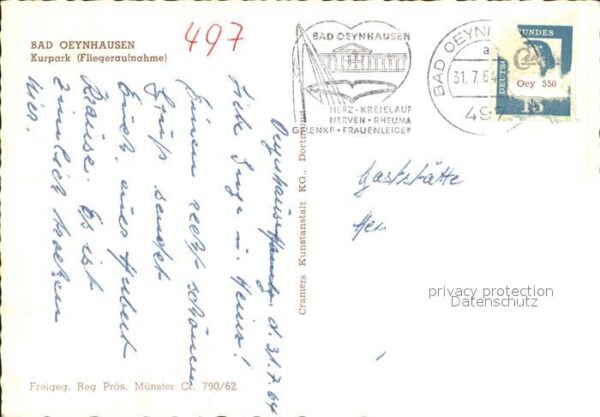 BAD OEYNHAUSEN
Kurpark (Fliegeraufnahme)
497
BAD OEYNHAUSEN
HERZ · KREISLAUF
NERVEN · RHEUMA
GELENKE · FRAUENLEIDEN
BAD OEYNH
a
31.7.64
497
DEUTSCHE BUNDES
Oey 550
d. 31.7.64
Liebe Inge u. Heinz!
Einen recht schönen
Gruß sendet
Euch, euer Hubert
Krause. Es ist
ziemlich trocken
hier.
Cramers Kunstanstalt KG., Dortmund
Gaststätte
privacy protection
Datenschutz
Freigeg. Reg Präs. Münster Cr. 790/62